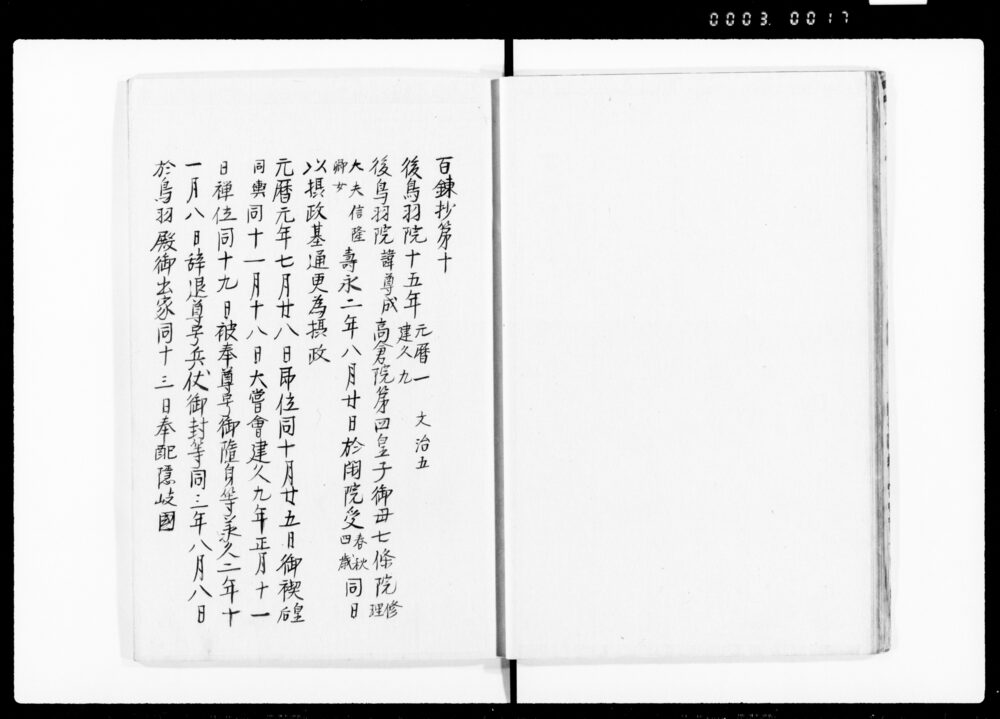 0003 0017
百錬抄第十
後鳥羽院十五年 元暦一 文治五 建久九
後鳥羽院 諱尊成 高倉院第四皇子御母七條院 修理
大夫信隆卿女 壽永二年八月廿日於閑院受 春秋四歳 同日
以摂政基通更為摂政
元暦元年七月廿八日即位同十月廿五日御禊 皇后
同輿 同十一月十八日大嘗會建久九年正月十一
日禅位同十九日被奉尊号御随身等承久二年十
一月八日辞退尊号兵仗御封等同三年八月八日
於鳥羽殿御出家同十三日奉配隠岐國